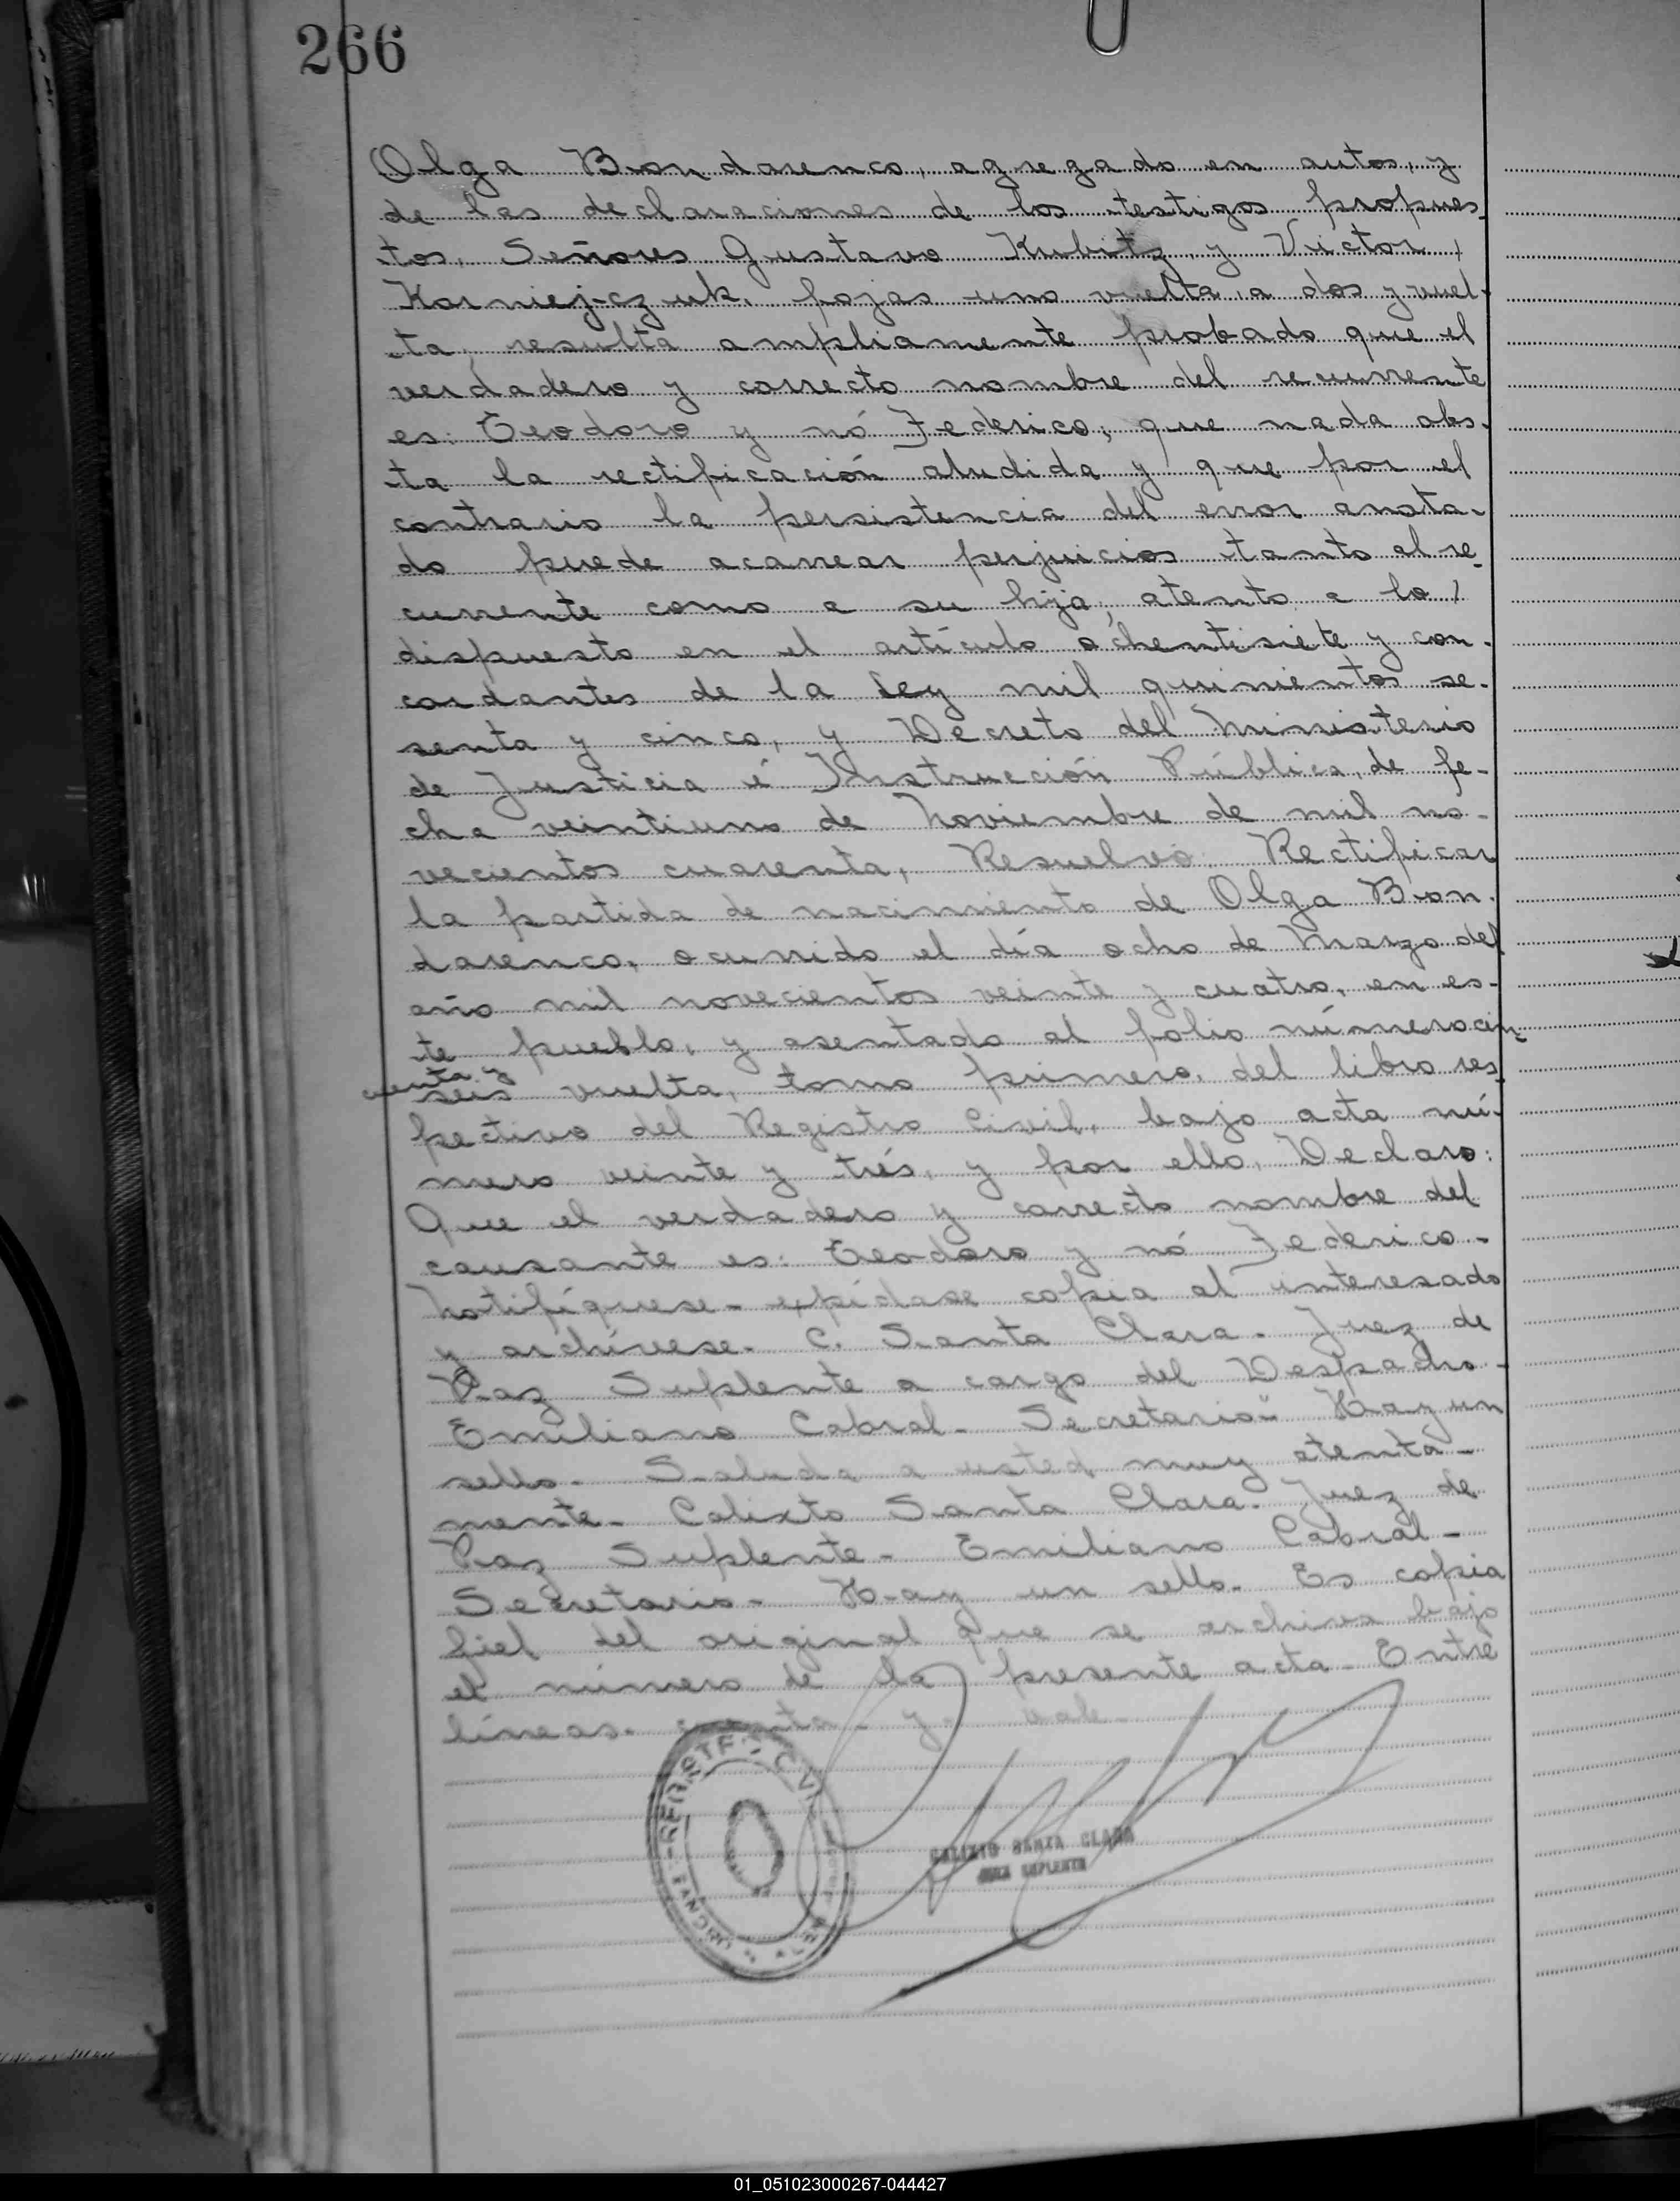 266
Olga Bondarenco, agregado en autos, y
de las declaraciones de los testigos propues-
tos, Señores Gustavo Kubitz y Víctor /
Korniej-czuk, fojas uno vuelta a dos y vuel-
ta, resulta ampliamente probado que el
verdadero y correcto nombre del recurrente
es: Teodoro y nó Federico; que nada obs-
ta la rectificación aludida y que por el
contrario la persistencia del error anota-
do puede acarrear perjuicios tanto al re-
currente como a su hija, atento a lo /
dispuesto en el artículo ochentisiete y con-
cordantes de la Ley mil quinientos se-
senta y cinco, y Decreto del Ministerio
de Justicia é Instrucción Pública, de fe-
cha veintiuno de Noviembre de mil no-
vecientos cuarenta, Resuelvo: Rectificar
la partida de nacimiento de Olga Bon-
darenco, ocurrido el día ocho de Marzo del
año mil novecientos veinte y cuatro, en es-
te pueblo, y asentado al folio número cin-
cuenta y
seis vuelta, tomo primero, del libro res-
pectivo del Registro Civil, bajo acta nú-
mero veinte y trés, y por ello, Declaro:
Que el verdadero y correcto nombre del
causante es: Teodoro y nó Federico.-
Notifíquese- expídase copia al interesado
y archívese- C. Santa Clara- Juez de
Paz Suplente a cargo del Despacho-
Emiliano Cabral- Secretario" Hay un
sello- Saluda a usted muy atenta-
mente- Calixto Santa Clara- Juez de
Paz Suplente- Emiliano Cabral-
Secretario- Hay un sello- Es copia
fiel del original que se archiva bajo
el número de la presente acta- Entre
líneas- cuenta- y- vale-
CALIXTO SANTA CLARA
JUEZ SUPLENTE
01_051023000267-044427